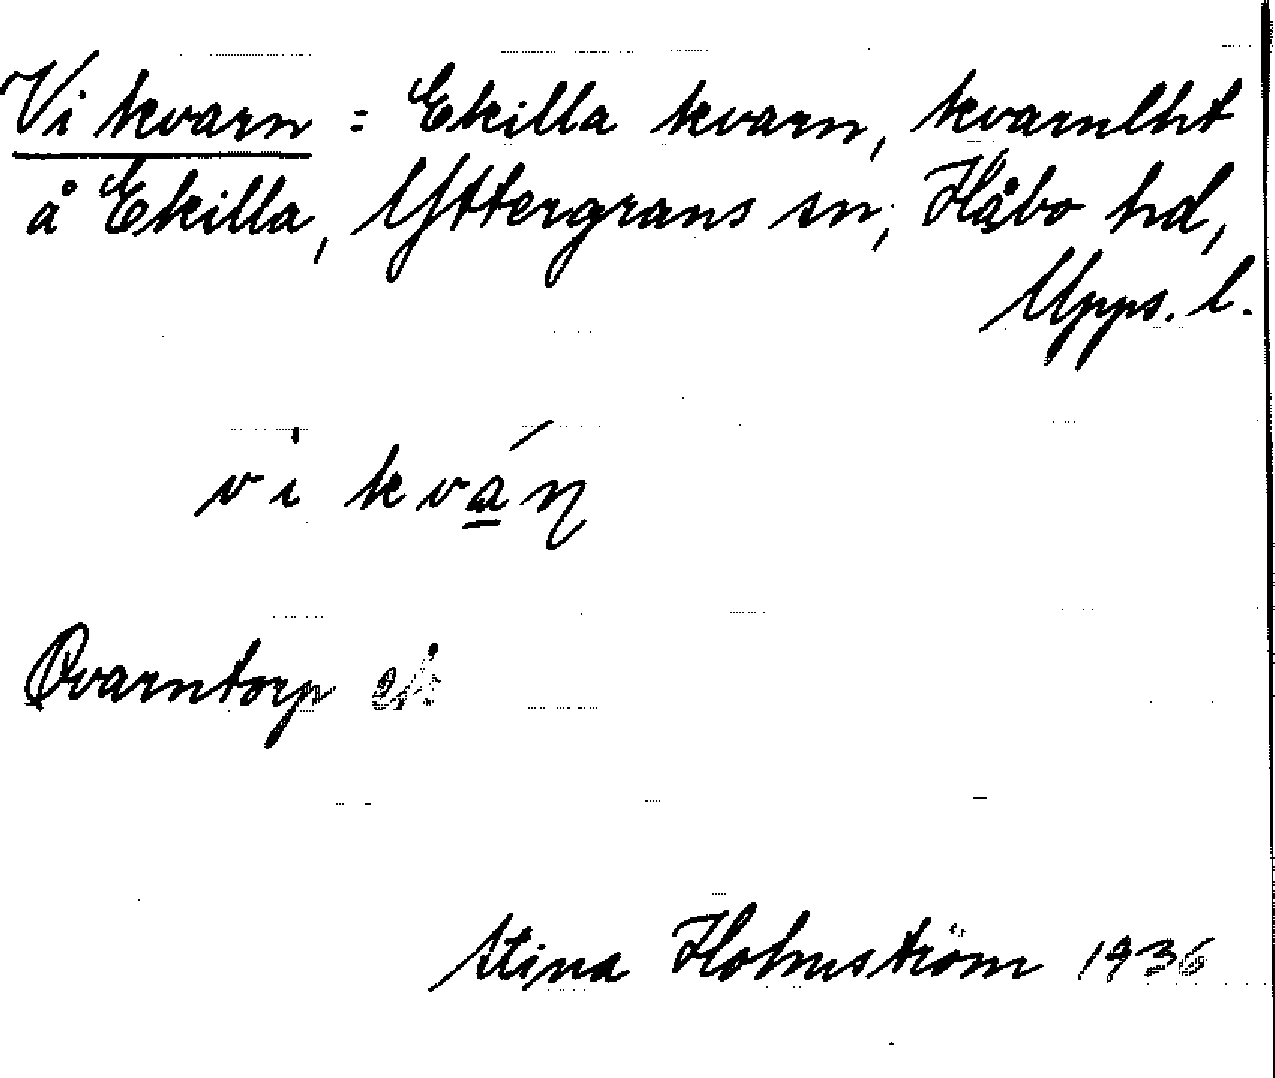 Vi kvarn = Ekilla kvarn, kvarnlht
å Ekilla, Yttergrans sn, Håbo hd,
Upps. l.
vi kván
Qvarntorp
Stina Holmström 1936